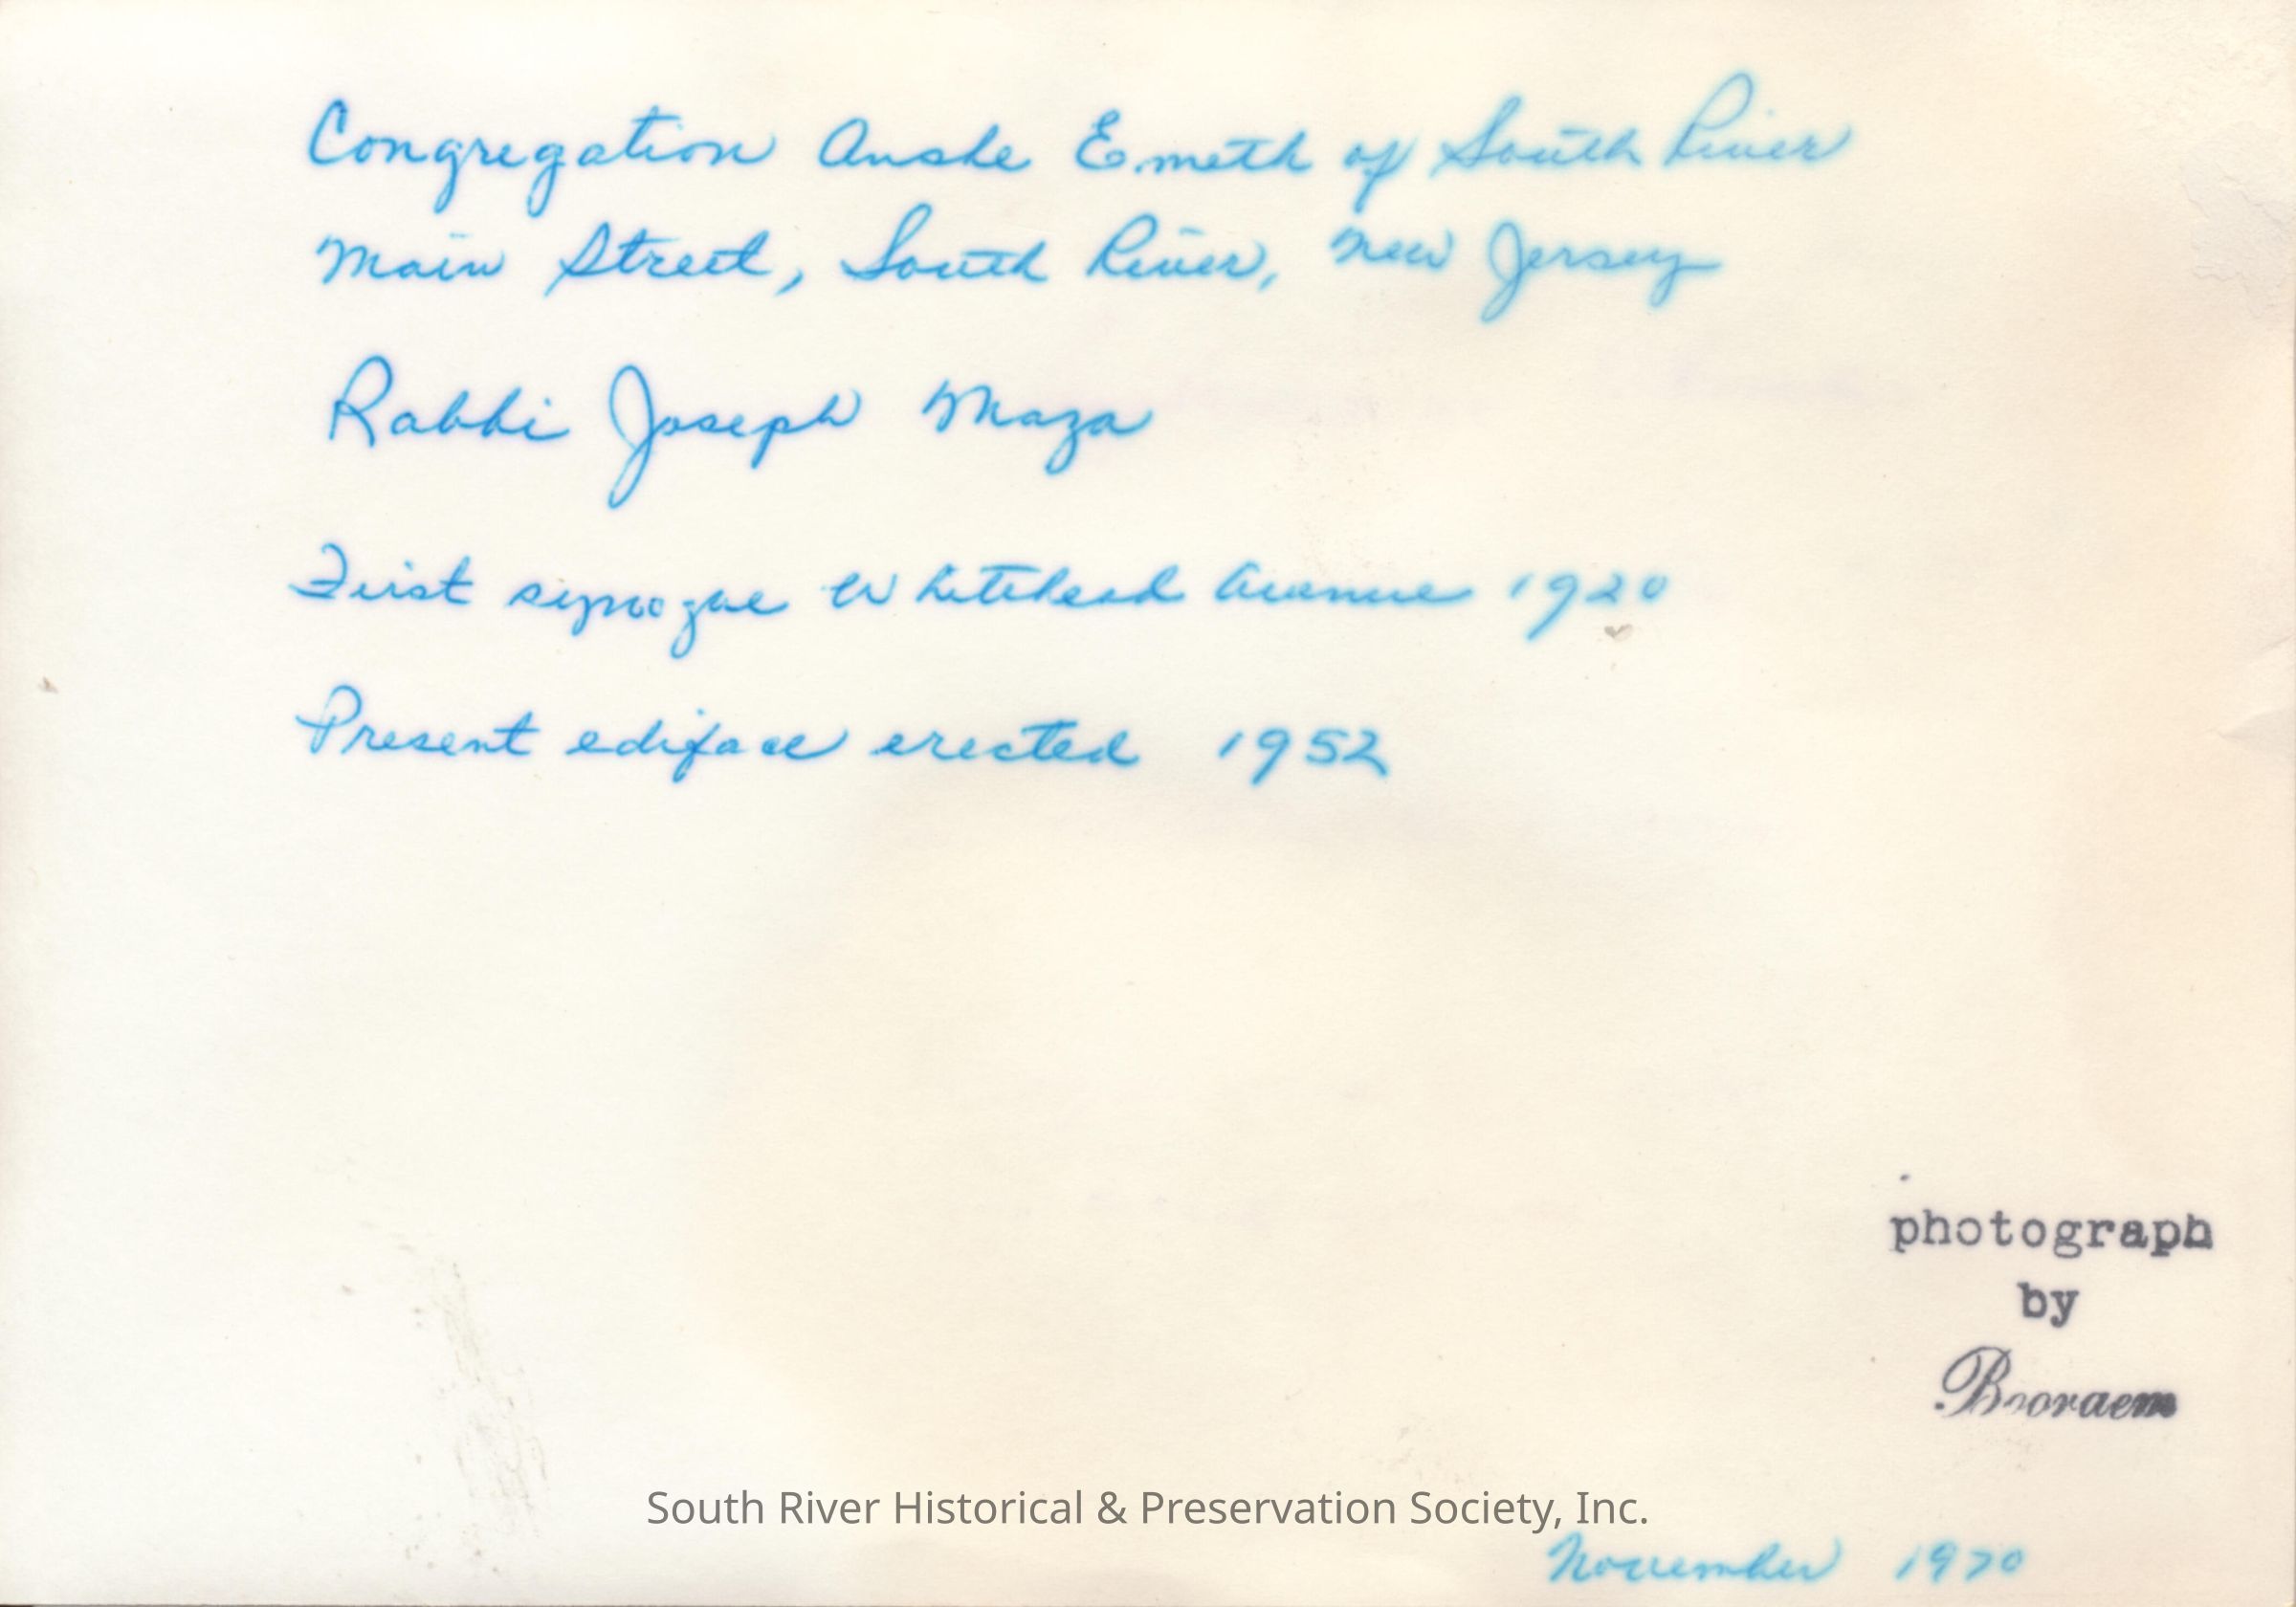 Congregation Anshe Emeth of South River
Main Street, South River, New Jersey
Rabbi Joseph Maza
First synogue Whitehead Avenue 1920
Present ediface erected 1952
photograph
by
Booraem
South River Historical & Preservation Society, Inc.
November 1970